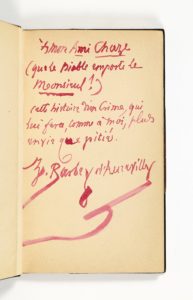 à mon Ami Chaze
(que le Diable emporte le
Monsieur!)
cette histoire d'un Crime, qui
lui fera, comme à moi, plus
envie que pitié.
J. Barbey d'Aurevilly